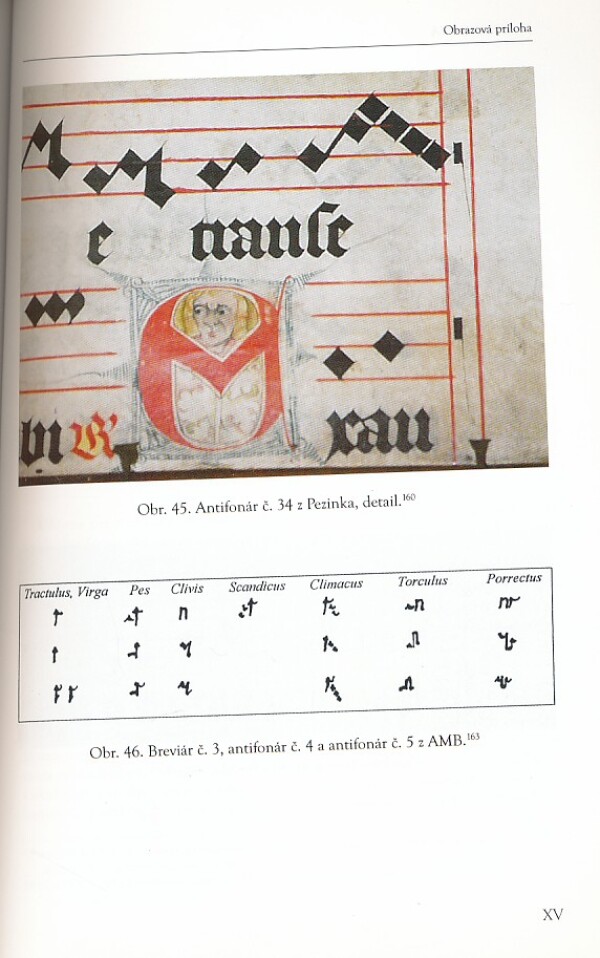 Obrazová príloha
e tranſe
bi R'
xau
Obr. 45. Antifonár č. 34 z Pezinka, detail.160
Tractulus, Virga Pes Clivis Scandicus Climacus Torculus Porrectus
Obr. 46. Breviár č. 3, antifonár č. 4 a antifonár č. 5 z AMB.163
XV